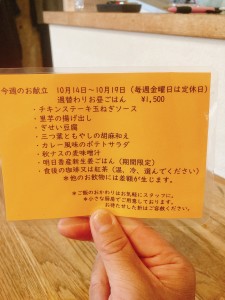 今週のお献立　10月14日～10月19日（毎週金曜日は定休日）
週替わりお昼ごはん　¥1,500
・チキンステーキ玉ねぎソース
・里芋の揚げ出し
・ぎせい豆腐
・三つ葉ともやしの胡麻和え
・カレー風味のポテトサラダ
・秋ナスの麦味噌汁
・明日香産新生姜ごはん（期間限定）
・食後の珈琲又は紅茶（温、冷、選んでください）
＊他のお飲物には差額が生じます。
＊ご飯のおかわりはお気軽にスタッフに。
＊小さな厨房でご用意しております。
お待たせした折はご容赦ください。